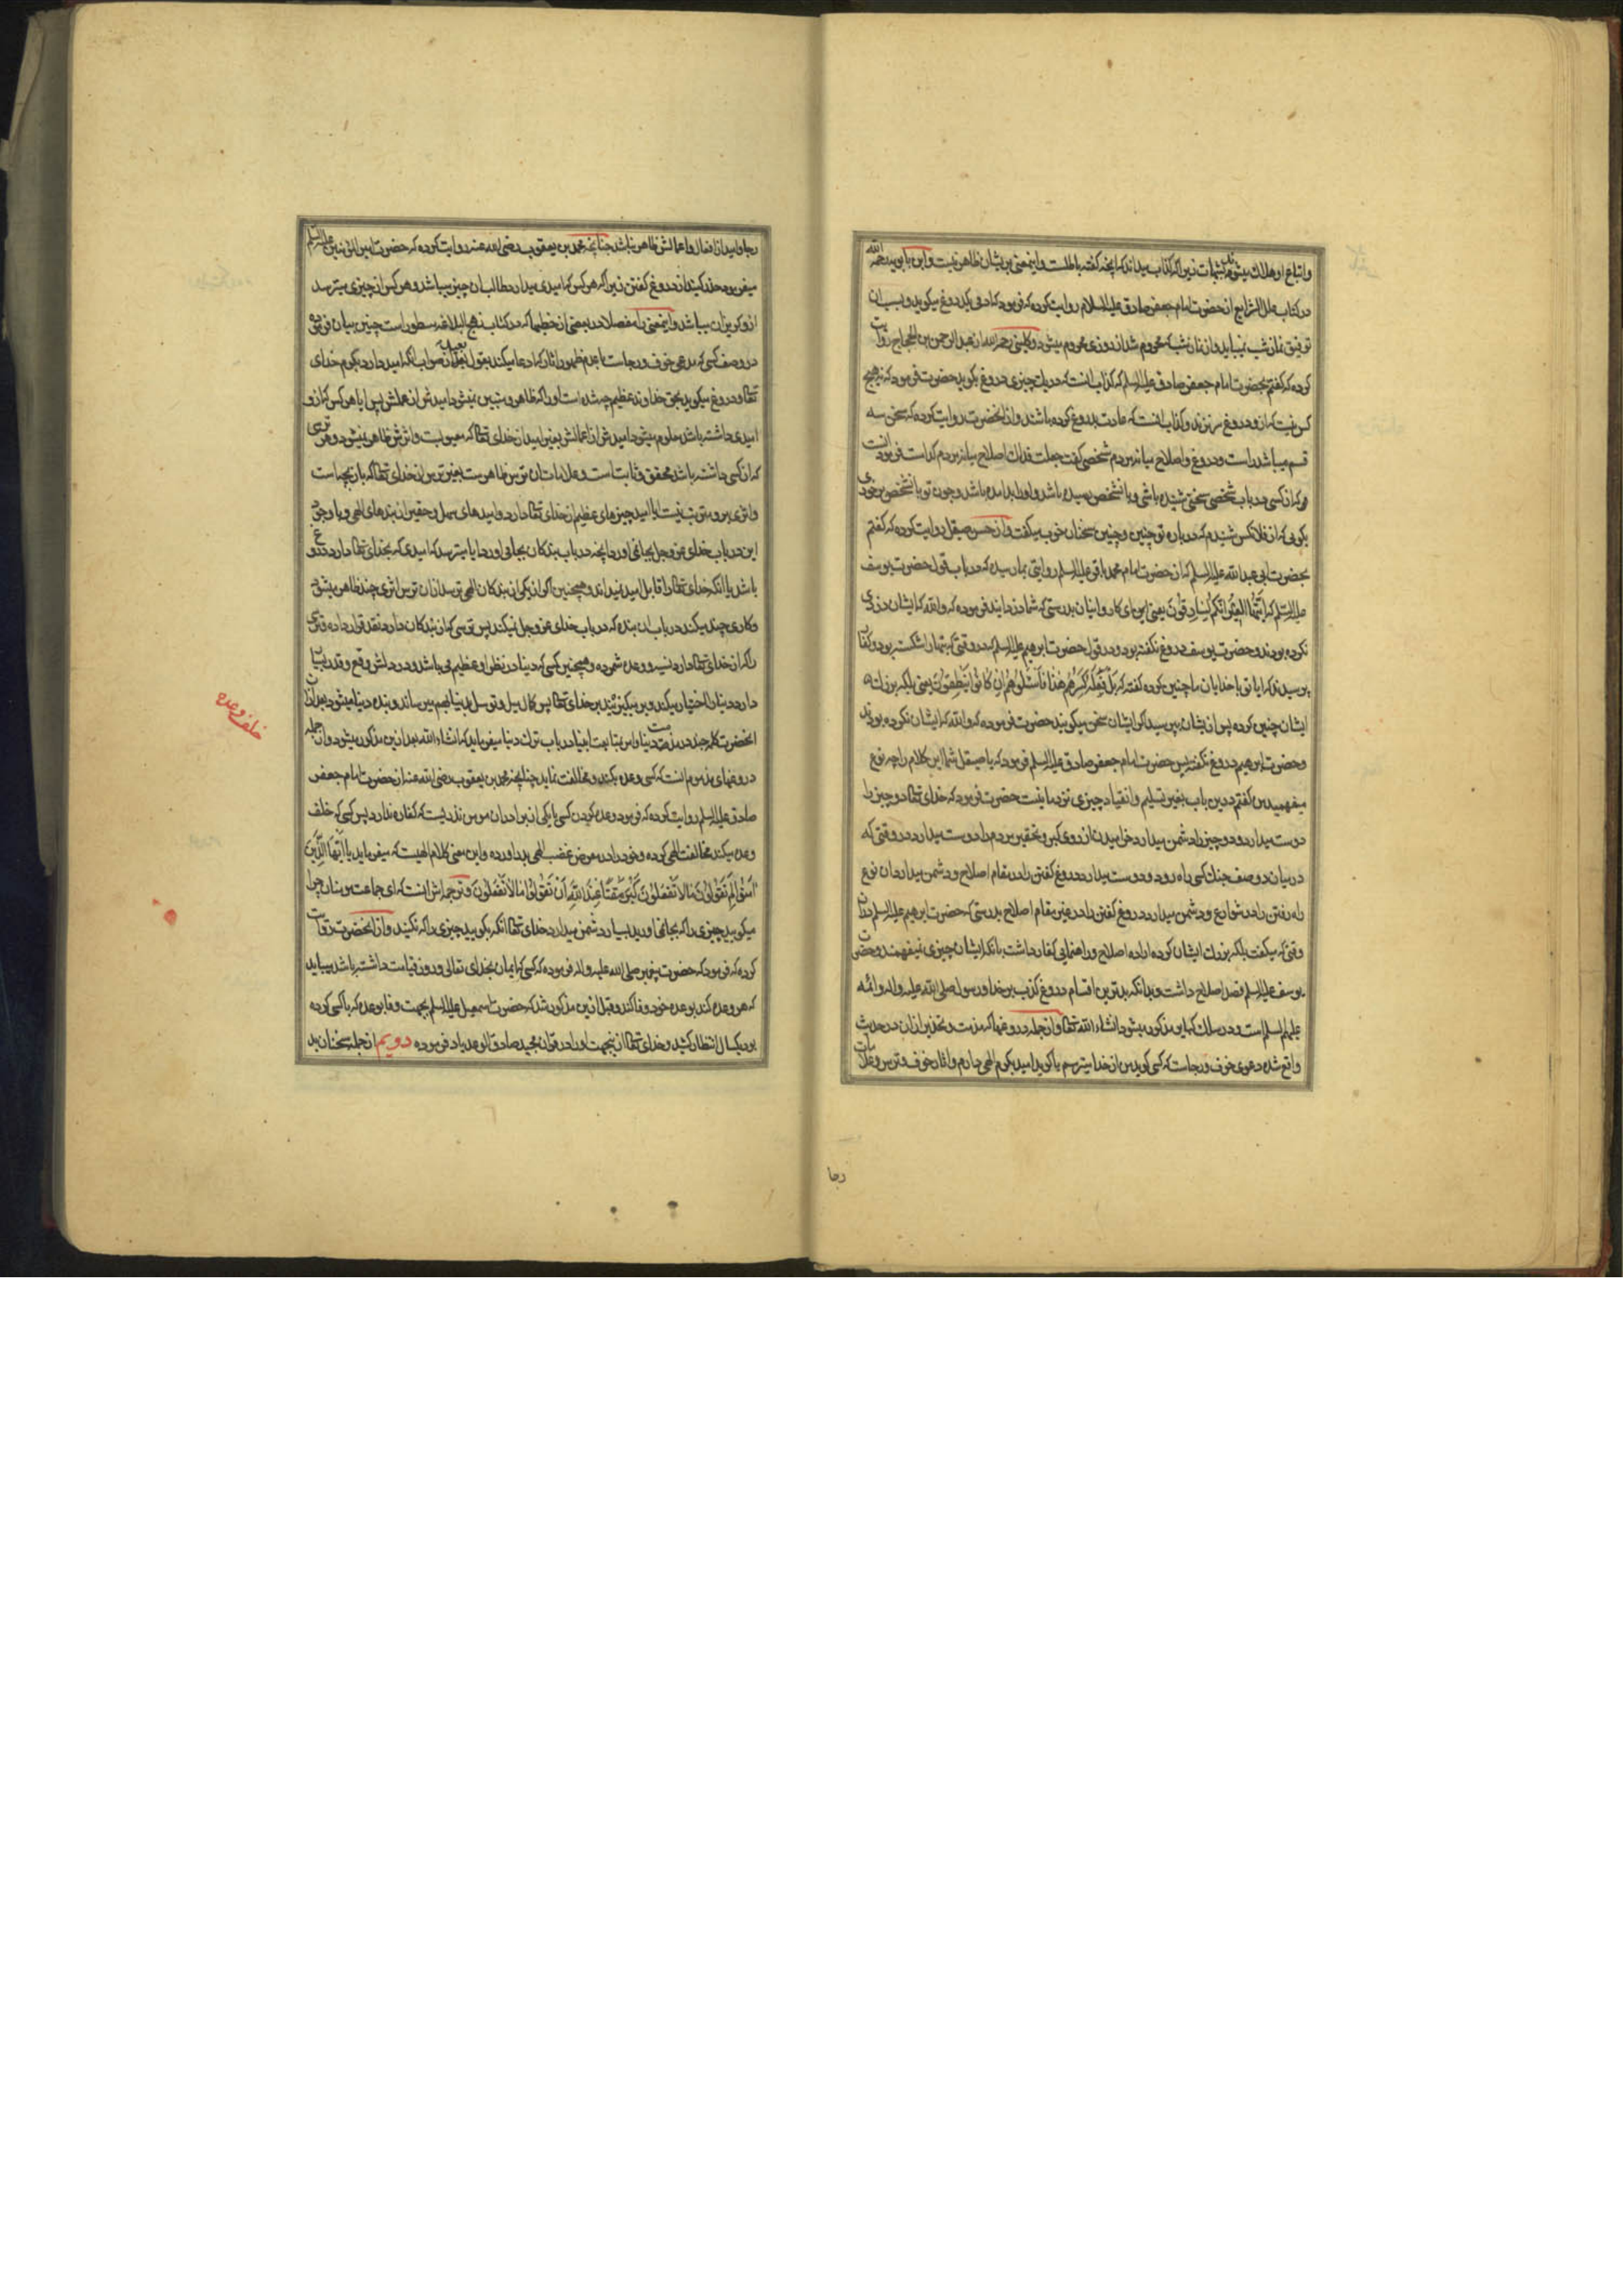 واتباع او هلاك میشوند بشبهات زیرا که کذاب میداند که انچه گفته باطلست و اینمعنی بریشان ظاهر نیست و ابن بابویه رحمه الله
در کتاب علل الشرایع از حضرت امام جعفر صادق علیه السلام روایت کرده که فرمود که ادمی یک دروغ میگوید و بسبب ان
توفیق نماز شب نمییابد و از نماز شب که محروم شد از روزی محروم میشود و کلینی رحمه الله از عبد الرحمن بن الحجاج روایت
کرده که گفتم بحضرت امام جعفر صادق علیه السلم که کذاب انست که در یک چیزی دروغ بگوید حضرت فرمود که نه هیچ
کس نیست که ازو دروغ سر نزند و کذاب انست که عادت بدروغ کرده باشد و از انحضرت روایت کرده که سخن سه
قسم میباشد راست و دروغ و اصلاح میانه مردم شخصی گفت جعلت فداك اصلاح میانه مردم کدامست فرمود انست
که از کسی در باب شخصی سخنی شنیده باشی و بانشخص رسیده باشد و اورا بد امده باشد و چون تو بانشخص برخوری
بگوئی که از فلانکس شنیدم که درباره تو چنین و چنین سخنان خوب میگفت و از حسن صیقل روایت کرده که گفتم
بحضرت ابی عبد الله علیه السلم که از حضرت امام محمد باقر علیه السلم روایتی بما رسیده که در باب قول حضرت یوسف
علیه السلم که اَیَّتُهَا العِیرُ اِنَّکُم لَسَارِقُونَ یعنی ای کاروانیان بدرستی که شما دزدانید فرموده که والله که ایشان دزدی
نکرده بودند و حضرت یوسف دروغ نگفته بود و در قول حضرت ابرهیم علیه السلم که در وقتی که بتها را شکسته بود و کفار
پرسیدند که ایا تو با خدایان ما چنین کرده گفته که بَل فَعَلَهُ کَبِیرُهُم هٰذَا فَاسئَلُوهُم اِن کَانُوا یَنطِقُونَ یعنی بلکه بزرك
ایشان چنین کرده پس از ایشان بپرسید اگر ایشان سخن میگویند حضرت فرموده که والله که ایشان نکرده بودند
و حضرت ابرهیم دروغ نگفته پس حضرت امام جعفر صادق علیه السلم فرمود که یا صیقل شما این کلام را چه نوع
میفهمید من گفتم در این باب بغیر تسلیم و انقیاد چیزی نزد ما نیست حضرت فرمود که خدای تعالی دو چیز را
دوست میدارد و دو چیز را دشمن میدارد خرامیدن از روی کبر و تحقیر مردم را دوست میدارد در وقتی که
در میان دو صف جنك کسی راه رود و دوست میدارد دروغ گفتن را در مقام اصلاح و دشمن میدارد ان نوع
راه رفتن را در شوارع و دشمن میدارد دروغ گفتن را در غیر مقام اصلاح بدرستی که حضرت ابرهیم علیه السلم دران
وقتی که میگفت بلکه بزرك ایشان کرده اراده اصلاح و راهنمایی کفار داشت بانکه ایشان چیزی نمیفهمند و حضرت
یوسف علیه السلم قصد اصلاح داشت و بدانکه بدترین اقسام دروغ کذب بر خدا و رسول صلی الله علیه و اله و ائمه
علیهم السلم است و در سلك کبایر مذکور میشود انشاء الله تعالی و از جمله دروغها که مذمت و تحذیر از ان در حدیث
واقع شده دعوی خوف و رجاست که کسی گوید من از خدا میترسم یا گوید امید بکرم الهی دارم و اثار خوف و ترس و علامات
رجا
رجا و امید از افعال و اعمالش ظاهر نباشد چنانچه محمد بن یعقوب رضی الله عنه روایت کرده که حضرت امیر المؤمنین علیه السلم
میفرموده حذر کنید از دروغ گفتن زیرا که هر کس که امیدی میدارد طالب ان چیز میباشد و هر کس از چیزی میترسد
ازو گریزان میباشد و اینمعنی را مفصلا در بعضی از خطبها که در کتاب نهج البلاغه مسطور است چنین بیان فرموده
در وصف کسی که مدعی خوف و رجاست با عدم ظهور اثار که ادعا میکند بقول بعید از صواب انکه امید دارد بکرم خدای
تعالی و دروغ میگوید بحق خداوند عظیم چه شده است اورا که ظاهر و مبین نمیشود امیدش از عملش پس ایا هر کس که ازو
امیدی داشته باشد معلوم میشود امیدش از اعمالش بغیر امید از خدای تعالی که معیوبست و اثرش ظاهر نمیشود و هر ترسی
که از کسی داشته باشد محقق و ثابت است و علامات ان ترس ظاهرست بغیر ترس از خدای تعالی که بازیچه است
و اثری برو مترتب نیست ایا امید چیزهای عظیم از خدای تعالی دارد و امیدهای سهل و حقیر از بندهای الهی و با وجود
این در باب خدای عز و جل بجا نمی اورد انچه در باب بندگان بجا می اورد ایا میترسد که امیدی که بخدای تعالی دارد دروغ
باشد یا انکه خدای تعالی را قابل امید نمیداند و همچنین اگر از یکی از بندگان الهی ترسد از ان ترس اثری چند ظاهر میشود
و کاری چند میکند در باب ان بنده که در باب خدای عز و جل نمیکند پس ترسی که از بندگان دارد نقد قرار داده و ترسی
را که از خدای تعالی دارد نسیه و وعده شمرده و همچنین کسی که دنیا در نظر او عظیم می باشد و در دلش وقع و قدر بسیار
دارد دنیا را اختیار میکند و بر میگزیند بر خدای تعالی پس کمال میل و توسل بدنیا بهم میرساند و بنده دنیا میشود بعد ازان
انحضرت کلمه چند در مذمت دنیا و امر بمتابعت انبیا در باب ترك دنیا میفرماید که انشاء الله بعد ازین مذکور میشود و از جمله
دروغهای مذموم انست که کسی وعده بکند و مخالفت نماید چنانچه محمد بن یعقوب رضی الله عنه از حضرت امام جعفر
صادق علیه السلم روایت کرده که فرمود وعده کردن کسی با یکی از برادران مومن نذریست که کفاره ندارد پس کسی که خلف
وعده میکند مخالفت الهی کرده و خود را در معرض غضب الهی در اورده و این معنی کلام الهیست که میفرماید یَا اَیُّهَا الَّذِینَ
اٰمَنُوا لِمَ تَقُولُونَ مَالَا تَفعَلُونَ کَبُرَ مَقتًا عِندَ اللّٰهِ اَن تَقُولُوا مَا لَا تَفعَلُونَ و ترجمه اش انست که ای جماعت مومنان چرا
میگویید چیزی را که بجا نمی اورید بسیار دشمن میدارد خدای تعالی انکه بگویید چیزی را که نکنید و از انحضرت روایت
کرده که فرمود که حضرت پیغمبر صلی الله علیه و اله فرموده که کسی که ایمان بخدای تعالی و روز قیامت داشته باشد میباید
که هر وعده کند بوعده خود وفا کند و قبل ازین مذکور شد که حضرت اسمعیل علیه السلم بجهت وفا بوعده که با کسی کرده
بود یکسال انتظار کشید و خدای تعالی ازینجهت اورا در قران مجید صادق الوعد یاد فرموده دویم از جمله سخنان بد
خلف وعده